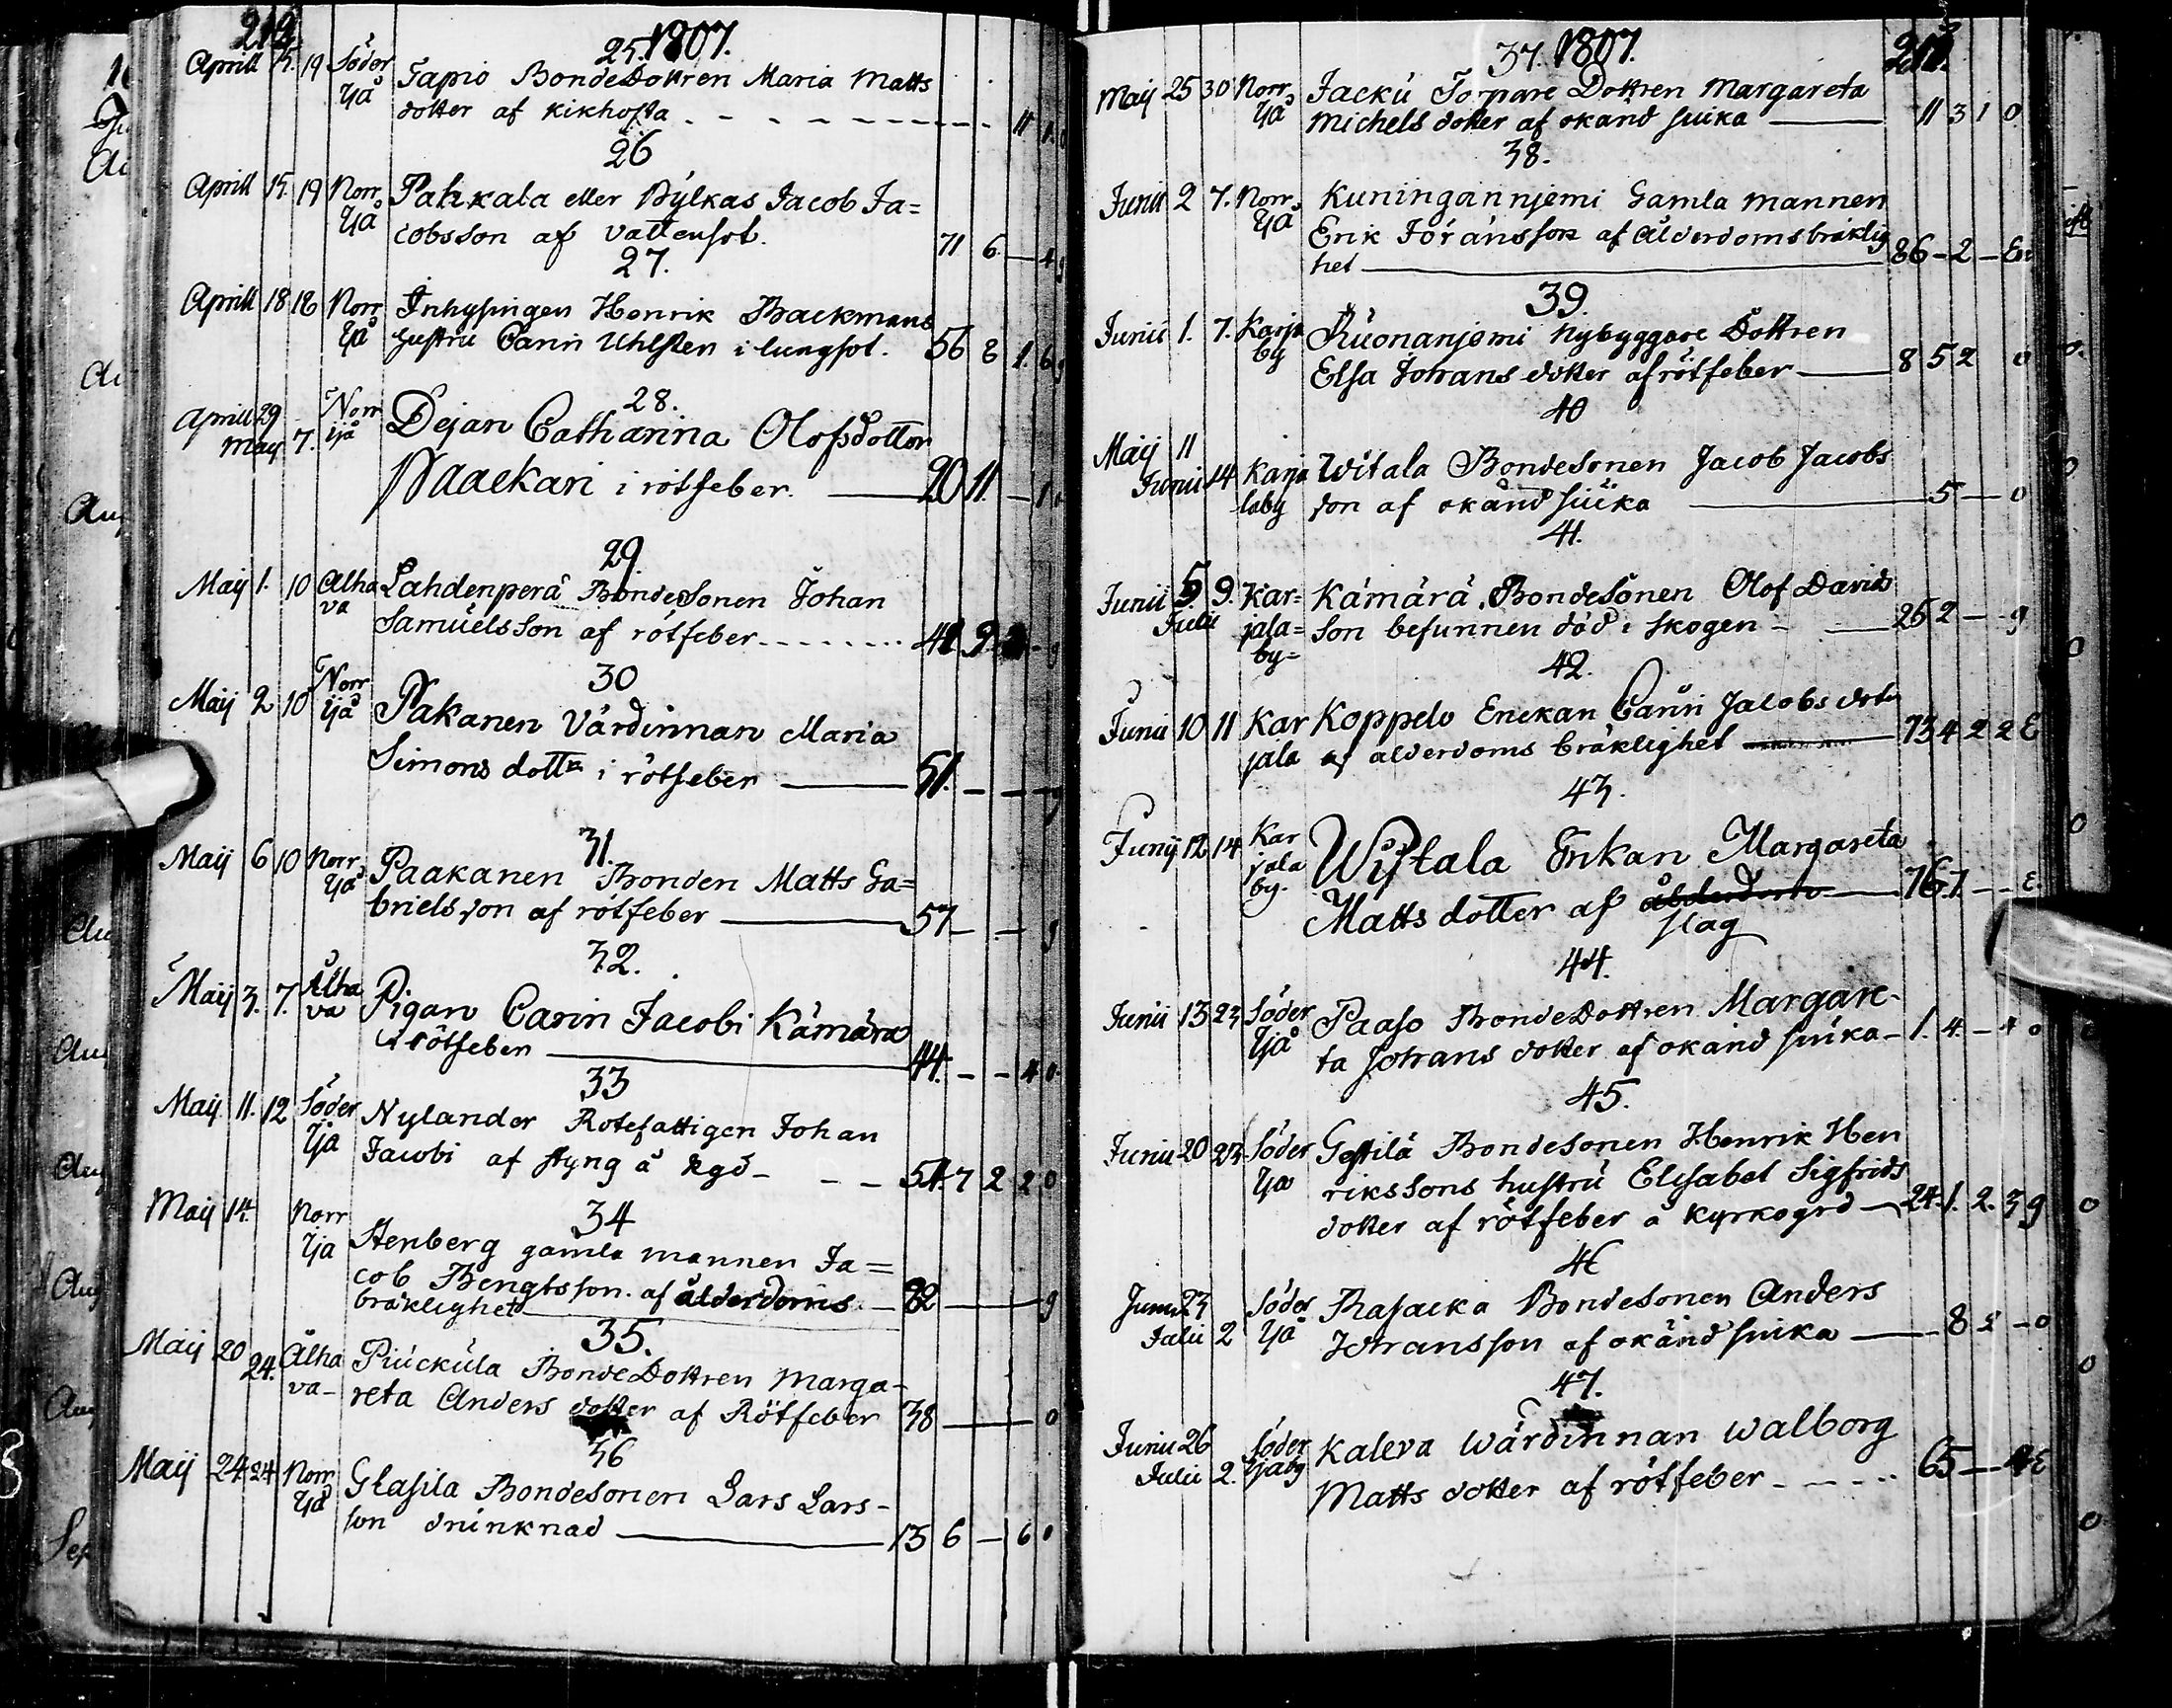 1807.
25.
Aprill 15. 19 Söder Tapio BondeDottren Maria Matts
Ijå dotter af kikhosta 11 1.
26
Aprill 15. 19 Norr Pahkala eller Bylkas Jacob Ja=
Ijå cobsson af vattusot. 71 6
27.
Aprill 18 18 Norr Inhysingen Henrik Backmans
Ijå hustru Carin Uhlsten i lungsot. 56 8 1. 6 g
28.
Aprill 29 Norr Dejan Catharina Olofsdotter
May 7. Ijå Naaekari i rötfeber. 20 11.
29.
Maij 1. 10 Alha Lahdenperä BondeSonen Johan
va Samuelsson af rötfeber 9
30
Maij 2 10 Norr Pakanen Värdinnan Maria
Ijå Simons dottr i rötfeber 51.
31.
Maij 6 10 Norr Paakanen Bonden Matts Ga=
Ijå brielsson af rötfeber 57 g
32.
Maij 3. 7. Alha Pigan Carin Jacobi Kämärä
va i rötfeber 44. 4 0
33
Maij 11. 12 Söder Nylander Rotefattigen Johan
Ija Jacobi af styng å kgd 54. 7 2 2 0
34
Maij 14. Norr Stenberg gamla mannen Ja=
Ija cob Bengtsson. af ålderdoms
bräklighet 82 g
35.
Maij 20 24. Alha Piuckula BondeDottren Marga-
va- reta Anders dotter af Rötfeber 38 0
36
Maij 24 24 Norr Glasila Bondesonen Lars Lars-
Ijå son drunknad 13 6 6 0
1807.
37.
Maij 25 30 Norr Jacku Torpare Dottren Margareta
Ijå Michels dotter af okänd siuka 11 3 1 0
38.
Junii 2 7. Norr Kuninganniemi Gamla mannen
Ijå Erik Jöransson af ålderdomsbräklig
het 86 - 2
39.
Junii 1. 7. Karja Ruonaniemi Nybyggare Dottren
by Elsa Johans dotter af rötfeber 8 5 2 0
40
Maij 11
Junii 14 Karja Witala Bondesonen Jacob Jacobs
laby son af okänd siuka 5 0
41.
Junii 5 9. Kar= Kämärä BondeSonen Olof Davids
Julii jala= son befunnen död i skogen 26 2 g
by=
42.
Junii 10 11 Kar Koppelo Enckan Carin Jacobs dotr
jala af ålderdoms bräklighet 73 4 2 2 E
43.
Junij 12 14 Kar Wijtala Enkan Margareta
jala Matts dotter af ålderdom 76. 7 E
by- slag
44.
Junii 13 23 Söder Paaso BondeDottren Margare-
Ijå ta Johans dotter af okänd siuka 1. 4. 4 0
45.
Junii 20 23 Söder Gestilä Bondesonen Henrik Hen
Ija rikssons hustru Elisabet Sigfrids
dotter af rötfeber å kyrkogrd 24. 1. 2. 3 g
46
Junii 23 Söder Rasacka Bondesonen Anders
Julii 2 Ijå Johansson af okänd siuka 8 0
47.
Junii 26 Söder Kaleva Wärdinnan Walborg
Julii 2. Ijåby Matts dotter af rötfeber 65